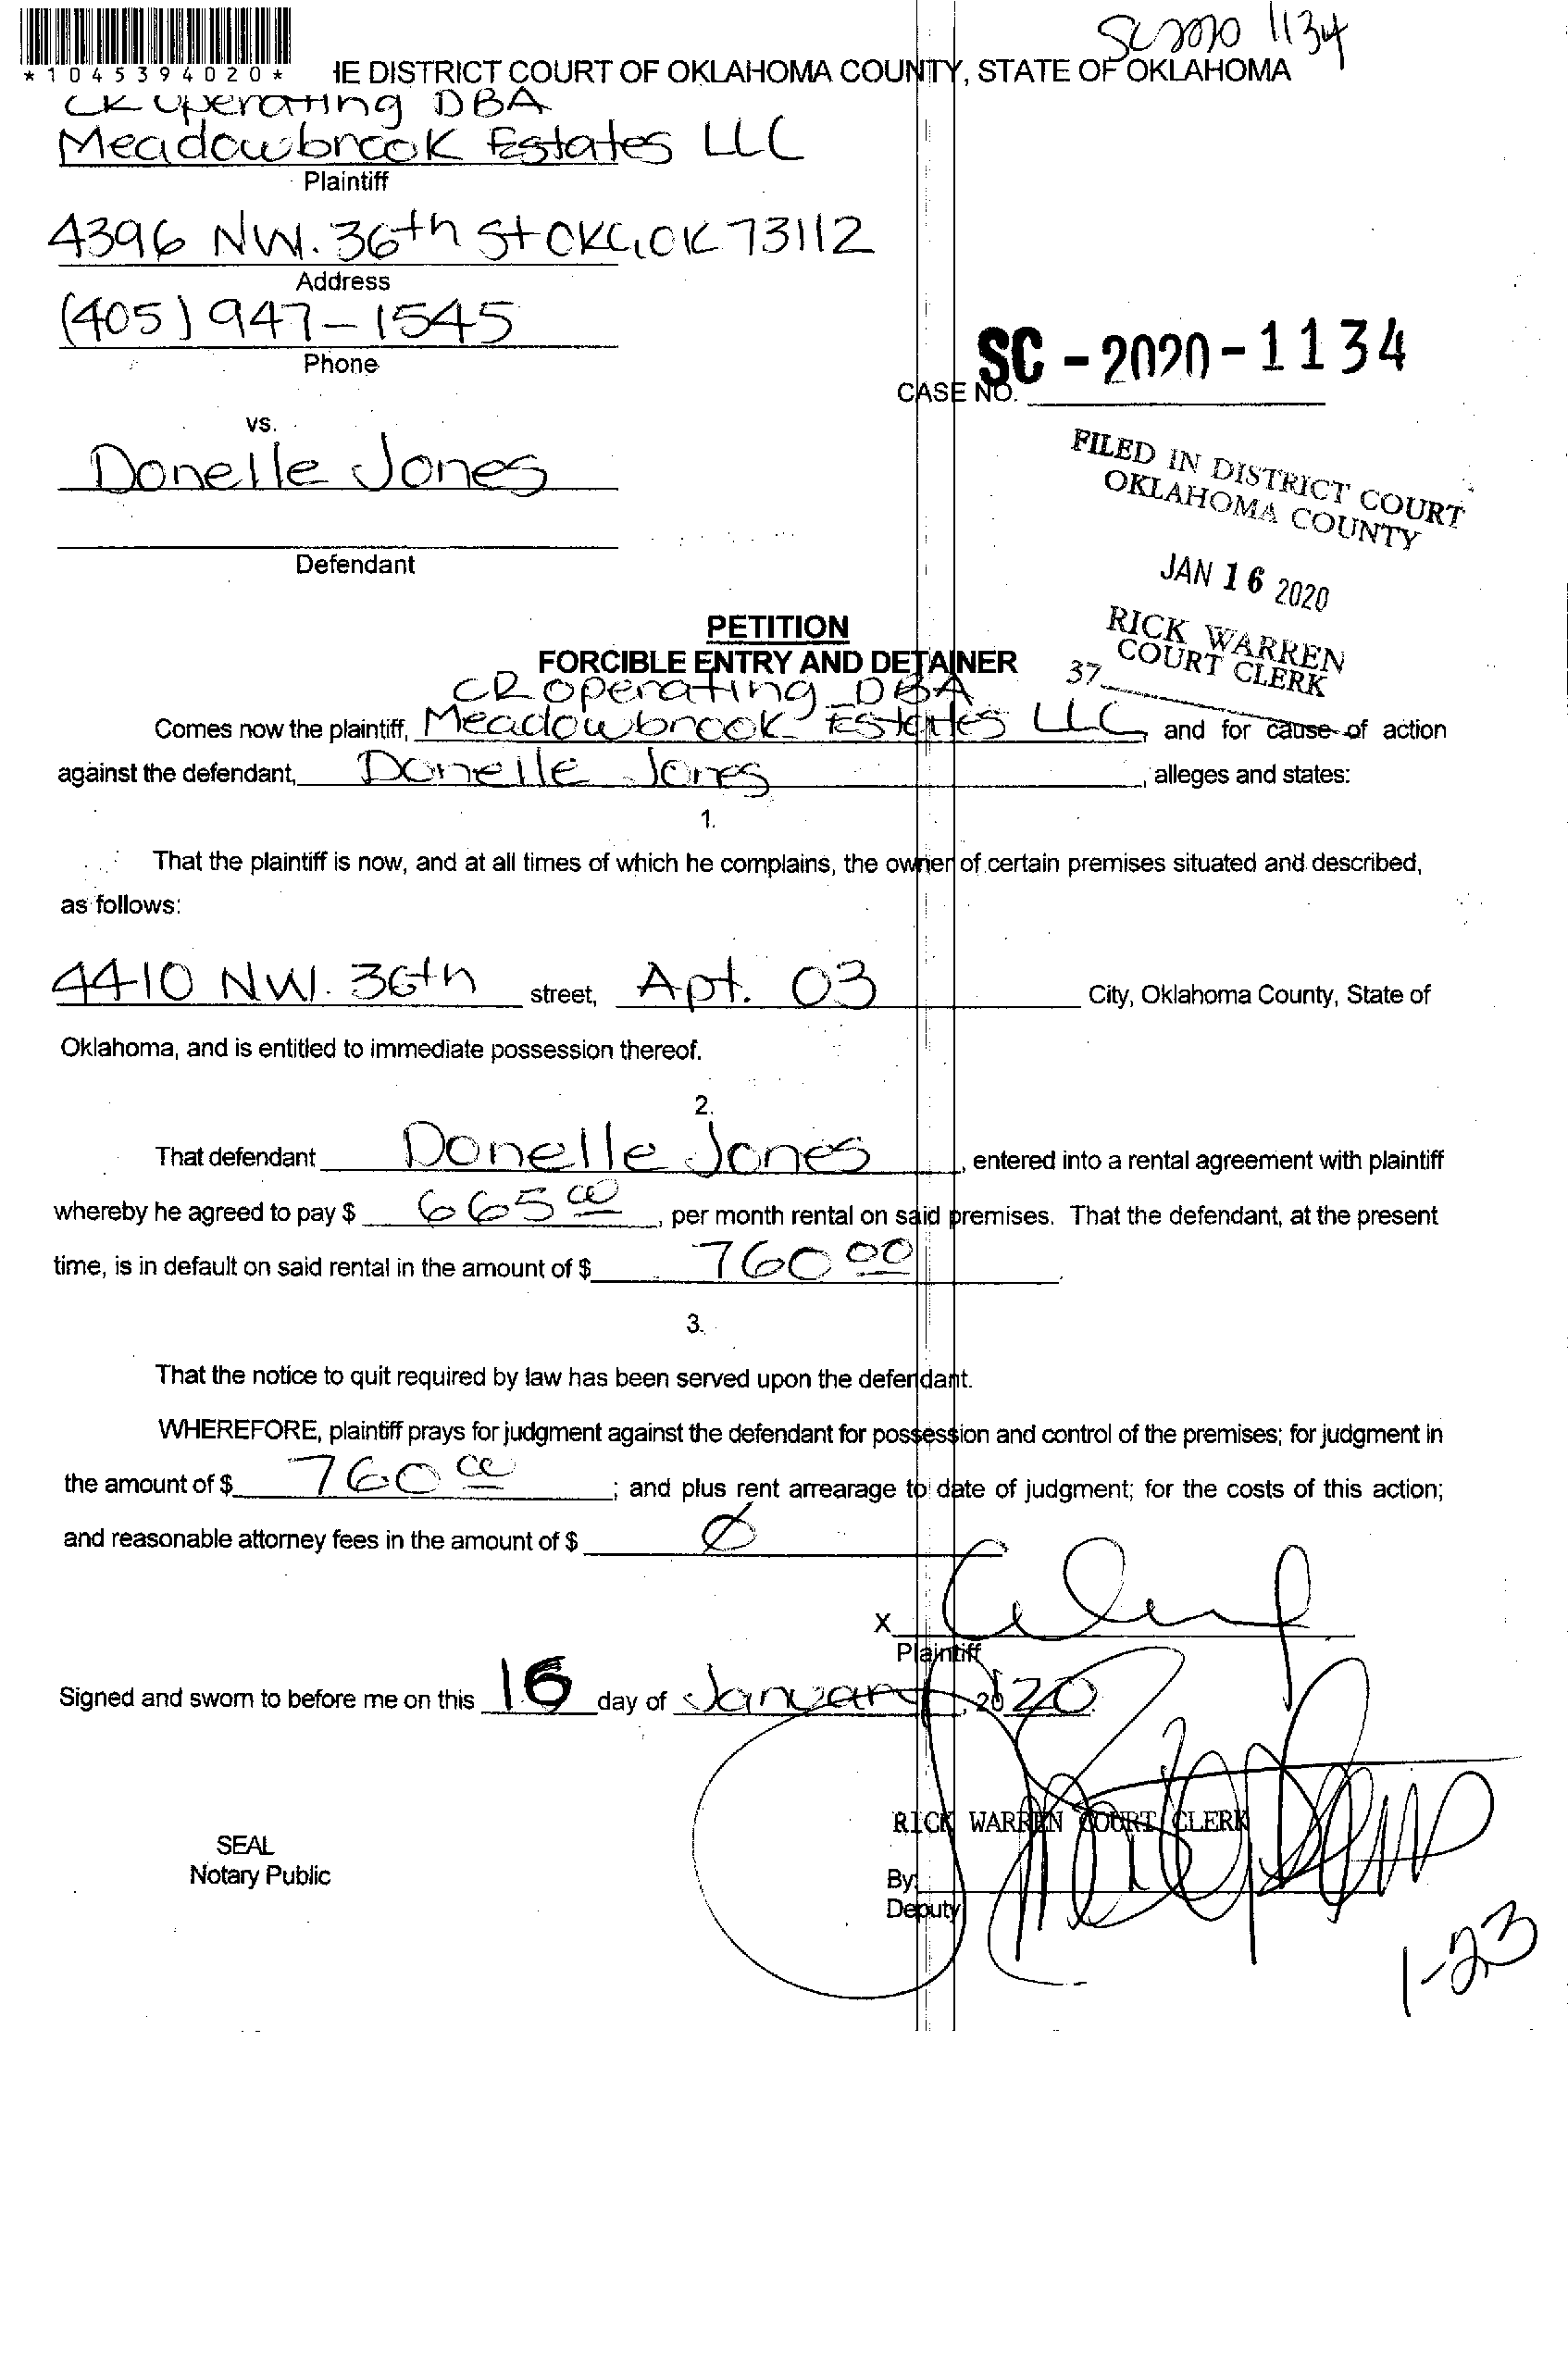 SC 2020 1134
*1045394020*
HE DISTRICT COURT OF OKLAHOMA COUNTY, STATE OF OKLAHOMA
CR Operating DBA
Meadowbrook Estates LLC
Plaintiff
4396 NW. 36th St OKC, OK 73112
Address
(405) 947-1545
Phone
SC - 2020 - 1134
CASE NO.
vs.
Donelle Jones
Defendant
FILED IN DISTRICT COURT
OKLAHOMA COUNTY
JAN 16 2020
RICK WARREN
COURT CLERK
37
PETITION
FORCIBLE ENTRY AND DETAINER
CR Operating DBA
Comes now the plaintiff, Meadowbrook Estates LLC, and for cause of action
against the defendant, Donelle Jones, alleges and states:
1.
That the plaintiff is now, and at all times of which he complains, the owner of certain premises situated and described,
as follows:
4410 NW. 36th street, Apt. 03 City, Oklahoma County, State of
Oklahoma, and is entitled to immediate possession thereof.
2.
That defendant Donelle Jones, entered into a rental agreement with plaintiff
whereby he agreed to pay $ 665 00, per month rental on said premises. That the defendant, at the present
time, is in default on said rental in the amount of $ 760 00.
3.
That the notice to quit required by law has been served upon the defendant.
WHEREFORE, plaintiff prays for judgment against the defendant for possession and control of the premises; for judgment in
the amount of $ 760 00; and plus rent arrearage to date of judgment; for the costs of this action;
and reasonable attorney fees in the amount of $ Ø
X
Plaintiff
Signed and sworn to before me on this 16 day of January, 2020.
RICK WARREN COURT CLERK
SEAL
Notary Public
By:
Deputy
1-23